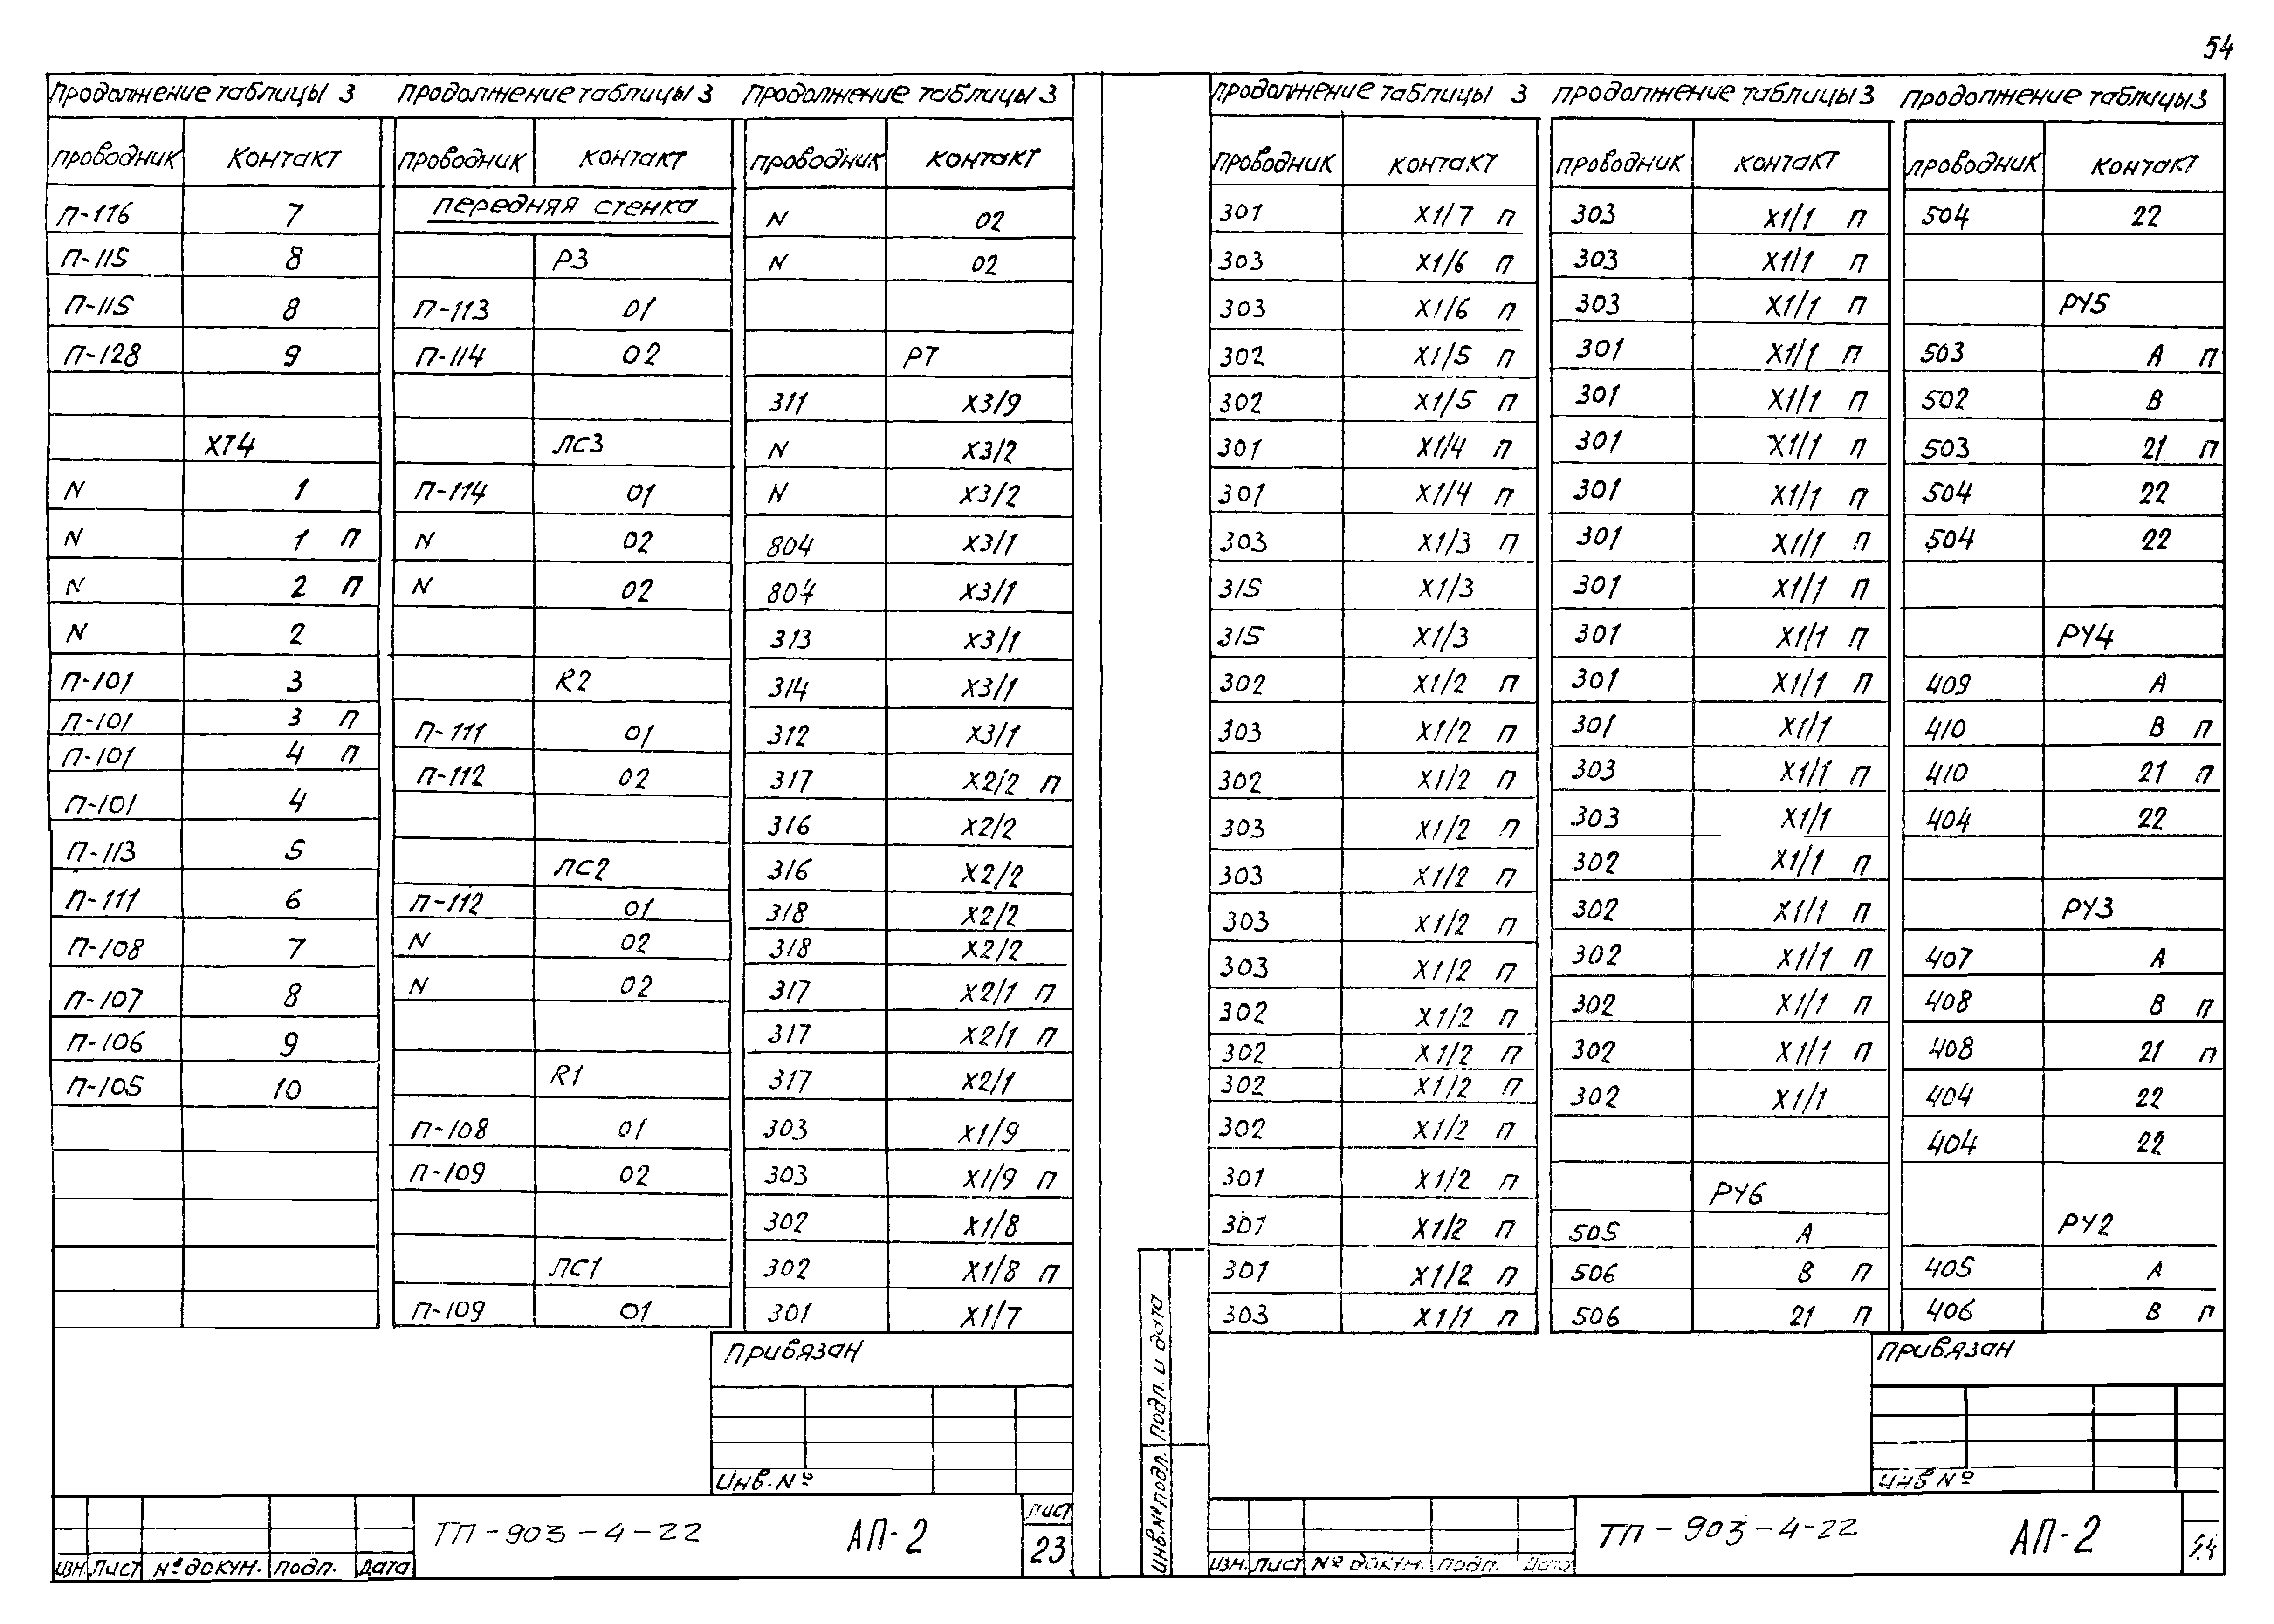 54
Продолжение таблицы 3
Проводник Контакт
П-116 7
П-115 8
П-115 8
П-128 9
ХТ4
N 1
N 1 П
N 2 П
N 2
П-101 3
П-101 3 П
П-101 4 П
П-101 4
П-113 5
П-111 6
П-108 7
П-107 8
П-106 9
П-105 10
Продолжение таблицы 3
Проводник Контакт
Передняя стенка
Р3
П-113 01
П-114 02
ЛС3
П-114 01
N 02
N 02
R2
П-111 01
П-112 02
ЛС2
П-112 01
N 02
N 02
R1
П-108 01
П-109 02
ЛС1
П-109 01
Продолжение таблицы 3
Проводник Контакт
N 02
N 02
Р7
311 Х3/9
N Х3/2
N Х3/2
804 Х3/1
804 Х3/1
313 Х3/1
314 Х3/1
312 Х3/1
317 Х2/2 П
316 Х2/2
316 Х2/2
318 Х2/2
318 Х2/2
317 Х2/1 П
317 Х2/1 П
317 Х2/1
303 Х1/9
303 Х1/9 П
302 Х1/8
302 Х1/8 П
301 Х1/7
Привязан
Инв. №
Изм. Лист № докум. Подп. Дата
ТП-903-4-22
АП-2
Лист
23
Продолжение таблицы 3
Проводник Контакт
301 Х1/7 П
303 Х1/6 П
303 Х1/6 П
302 Х1/5 П
302 Х1/5 П
301 Х1/4 П
301 Х1/4 П
303 Х1/3 П
315 Х1/3
315 Х1/3
302 Х1/2 П
303 Х1/2 П
302 Х1/2 П
303 Х1/2 П
303 Х1/2 П
303 Х1/2 П
303 Х1/2 П
302 Х1/2 П
302 Х1/2 П
302 Х1/2 П
302 Х1/2 П
301 Х1/2 П
301 Х1/2 П
301 Х1/2 П
303 Х1/1 П
Продолжение таблицы 3
Проводник Контакт
303 Х1/1 П
303 Х1/1 П
303 Х1/1 П
301 Х1/1 П
301 Х1/1 П
301 Х1/1 П
301 Х1/1 П
301 Х1/1 П
301 Х1/1 П
301 Х1/1 П
301 Х1/1 П
301 Х1/1
303 Х1/1 П
303 Х1/1
302 Х1/1 П
302 Х1/1 П
302 Х1/1 П
302 Х1/1 П
302 Х1/1 П
302 Х1/1
РУ6
505 А
506 В П
506 21 П
Продолжение таблицы 3
Проводник Контакт
504 22
РУ5
503 А П
502 В
503 21 П
504 22
504 22
РУ4
409 А
410 В П
410 21 П
404 22
РУ3
407 А
408 В П
408 21 П
404 22
404 22
РУ2
405 А
406 В П
Привязан
Инв №
Инв. № подл. Подп. и дата
Изм. Лист № докум. Подп. Дата
ТП-903-4-22
АП-2